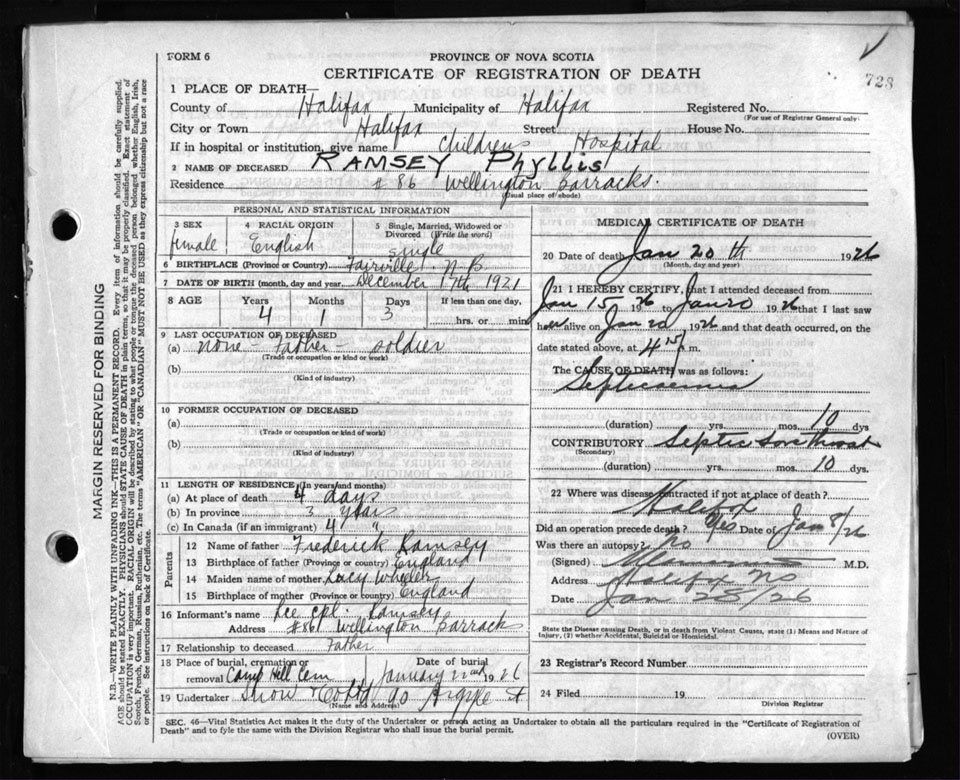 728
FORM 6
PROVINCE OF NOVA SCOTIA
CERTIFICATE OF REGISTRATION OF DEATH
1 PLACE OF DEATH
County of Halifax Municipality of Halifax Registered No.
(For use of Registrar General only)
City or Town Halifax Street House No.
If in hospital or institution, give name Childrens Hospital
2 NAME OF DECEASED RAMSEY Phyllis
Residence # 86 Wellington Barracks.
(Usual place of abode)
PERSONAL AND STATISTICAL INFORMATION
3 SEX female
4 RACIAL ORIGIN English
5 Single, Married, Widowed or Divorced (Write the word) Single
6 BIRTHPLACE (Province or Country) Fairville N B
7 DATE OF BIRTH (month, day and year) December 17th 1921
8 AGE Years 4 Months 1 Days 3 If less than one day, ....hrs. or min
9 LAST OCCUPATION OF DECEASED
(a) none - Father - soldier
(Trade or occupation or kind or work)
(b)
(Kind of industry)
10 FORMER OCCUPATION OF DECEASED
(a)
(Trade or occupation or kind of work)
(b)
(Kind of industry)
11 LENGTH OF RESIDENCE (In years and months)
(a) At place of death 4 days
(b) In province 3 years
(c) In Canada (if an immigrant) 4 "
Parents
12 Name of father Frederick Ramsey
13 Birthplace of father (Province or country) England
14 Maiden name of mother Lucy Wheeler
15 Birthplace of mother (Province or country) England
16 Informant's name Lce cpl. Ramsey
Address #86 Wellington Barracks
17 Relationship to deceased Father
18 Place of burial, cremation or removal Camp Hill Cem Date of burial January 22nd 1926
19 Undertaker Snow & Co Ltd 90 Argyle St
(Name and Address)
MEDICAL CERTIFICATE OF DEATH
20 Date of death Jan 20 th 1926
(Month, day and year)
21 I HEREBY CERTIFY, that I attended deceased from
Jan 15 1926 to Jan 20 1926 that I last saw
her alive on Jan 20 1926 and that death occurred, on the
date stated above, at 4 15 m.
The CAUSE OF DEATH was as follows:
Septicaemia
(duration) yrs. mos. 10 dys
CONTRIBUTORY Septic Sore throat
(Secondary)
(duration) yrs. mos. 10 dys.
22 Where was disease contracted if not at place of death?
Halifax
Did an operation precede death? Yes Date of Jan 8/26
Was there an autopsy? No
(Signed) M.D.
Address Halifax NS
Date Jan 28/26
State the Disease causing Death, or in death from Violent Causes, state (1) Means and Nature of
Injury, (2) whether Accidental, Suicidal or Homicidal.
23 Registrar's Record Number
24 Filed 19
Division Registrar
SEC. 46—Vital Statistics Act makes it the duty of the Undertaker or person acting as Undertaker to obtain all the particulars required in the "Certificate of Registration of
Death" and to fyle the same with the Division Registrar who shall issue the burial permit.
(OVER)
MARGIN RESERVED FOR BINDING
N.B.—WRITE PLAINLY WITH UNFADING INK—THIS IS A PERMANENT RECORD. Every item of information should be carefully supplied.
AGE should be stated EXACTLY. PHYSICIANS should STATE CAUSE OF DEATH in plain terms, so that it may be properly classified. Exact statement of
OCCUPATION is very important. RACIAL ORIGIN will be described by stating to what people or tongue the deceased person belonged whether English, Irish,
Scotch, French, German, Russian, Ruthenian, etc. The terms "AMERICAN" OR "CANADIAN" MUST NOT BE USED as they express citizenship but not a race
or people. See instructions on back of Certificate.